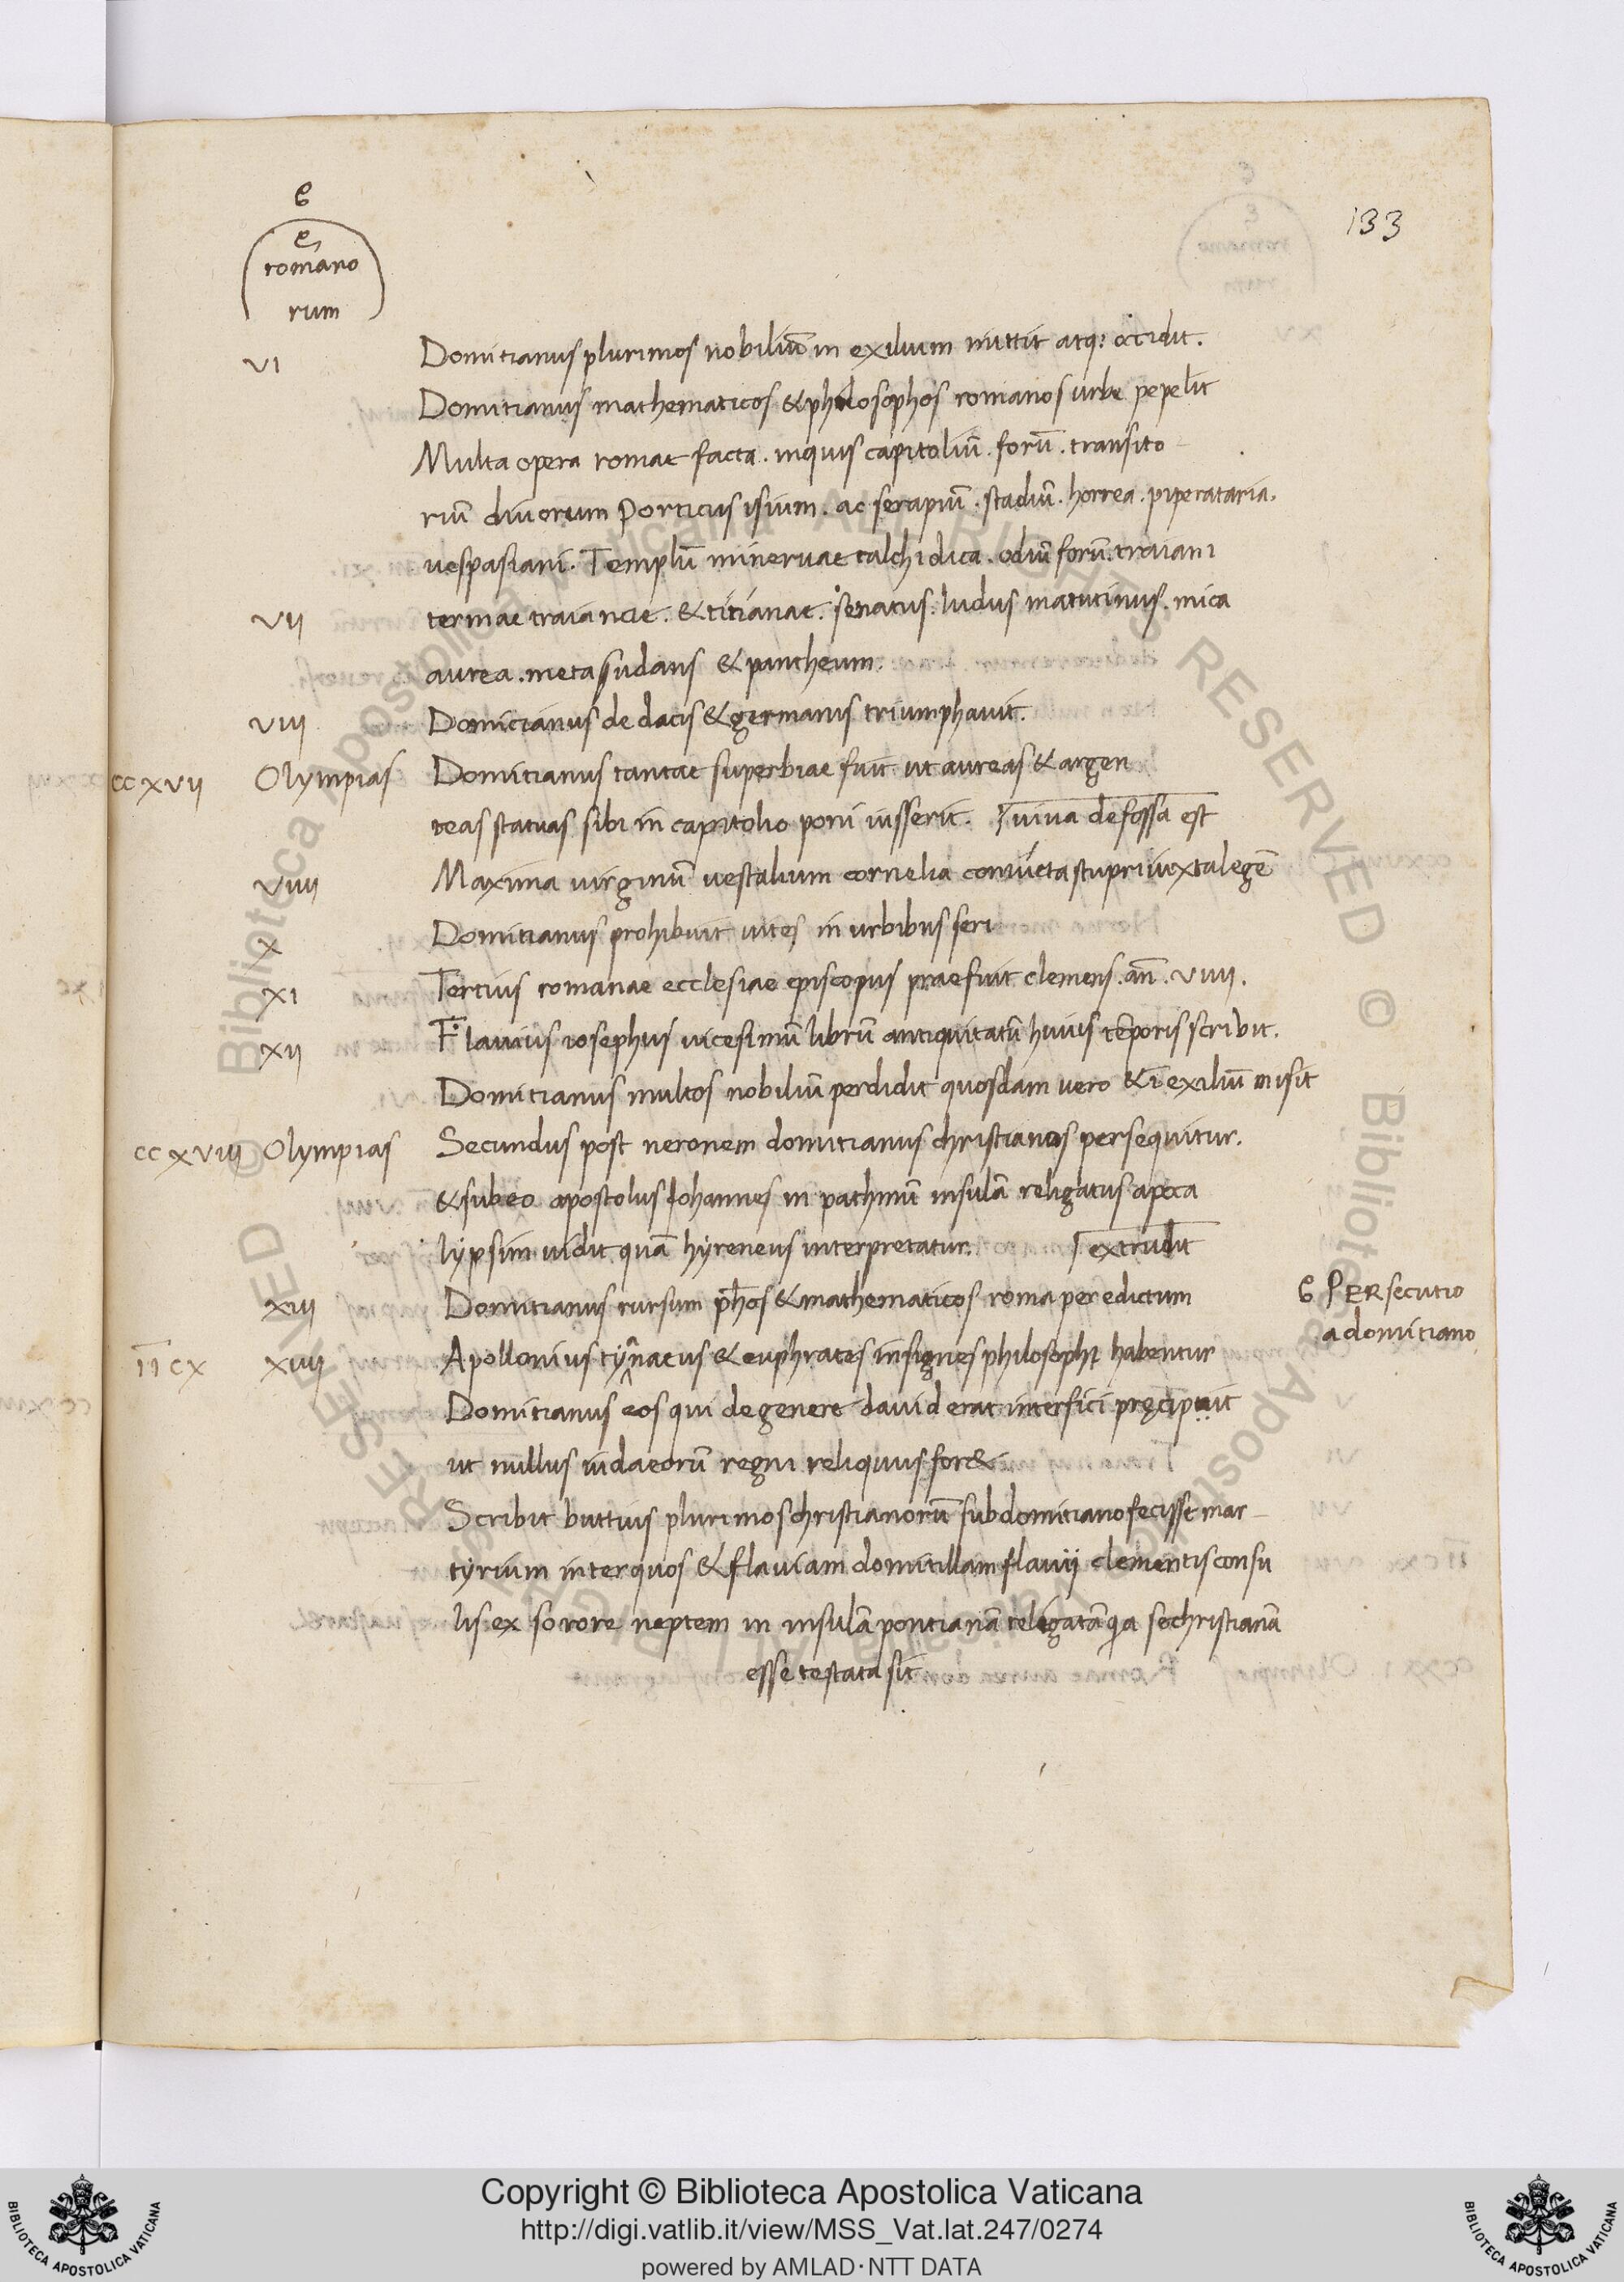 133
romano
rum
VI Domitianus plurimos nobiliū in exilium mittit atq; occidit.
Domitianus mathematicos & philosophos romanos urbe pepelit
Multa opera romae facta. inquis capitoliū. forū. transito
riū diuorum porticus isium. ac serapiū. stadiū. horrea. piperataria.
uespasiani. Templū mineruae calchidica. odiū forū. traiani
VII termae traianae. & titianae. senatus. ludus matutinus. mica
aurea. meta sudans & pantheum.
VIII Domitianus de dacis & germanis triumphauit.
CCXVII Olympias Domitianus tantae superbiae fuit ut aureas & argen
teas statuas sibi in capitolio poni iusserit. uiua defossa est
VIIII Maxima uirginū uestalium cornelia conuicta stupri iuxta legē
X Domitianus prohibuit uites in urbibus seri
XI Tertius romanae ecclesiae episcopus praefuit clemens. añ. VIIII.
XII Flauius iosephus uicesimū librū antiquitatū huius tēporis scribit.
Domitianus multos nobiliū perdidit quosdam uero & ī exiliū misit
CCXVIII Olympias Secundus post neronem domitianus christianos persequitur.
& sub eo apostolus Iohannes in pathmū insulā religatus apoca
lypsim uidit quā hyreneus interpretatur. extrudit
XIII Domitianus rursum ph̄os & mathematicos roma per edictum
PERsecutio
a domitiano
IICX XIIII Apollonius tynaeus & euphrates insignes philosophi habentur
Domitianus eos qui de genere dauid erat interfici pręcipuit
ut nullus iudaeorū regni reliquus for&
Scribit buttius plurimos christianorū sub domitiano fecisse mar
tyrium inter quos & flauiam domitillam flauij clementis consu
lis ex sorore neptem in insulā pontianā religatā q̄a se christianā
esse testata sit
Copyright © Biblioteca Apostolica Vaticana
http://digi.vatlib.it/view/MSS_Vat.lat.247/0274
powered by AMLAD·NTT DATA
BIBLIOTECA APOSTOLICA VATICANA
BIBLIOTECA APOSTOLICA VATICANA